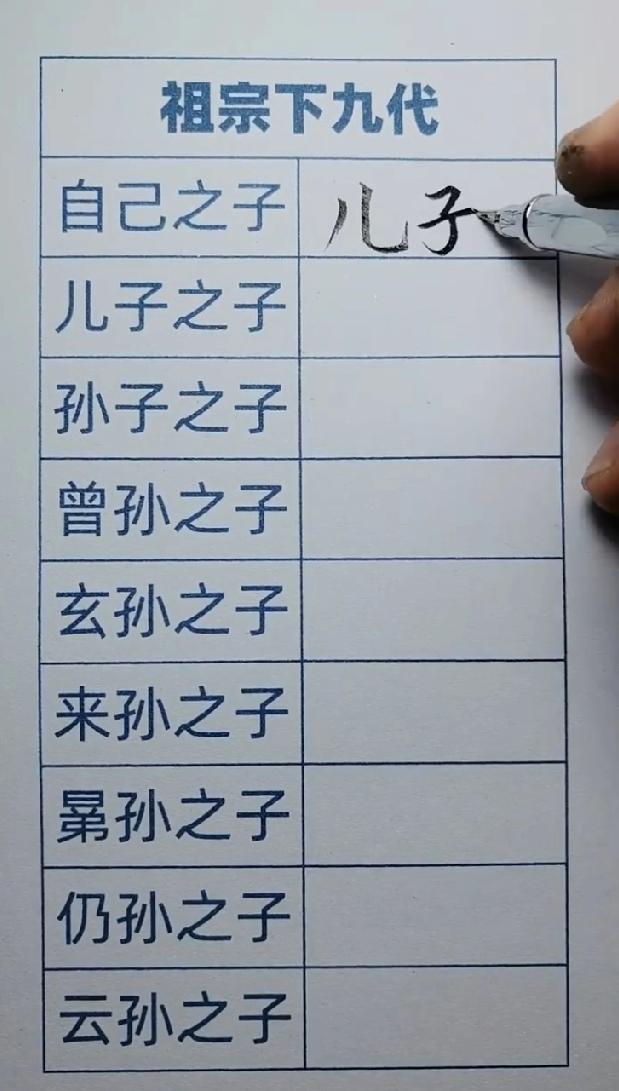 祖宗下九代
自己之子 儿子
儿子之子
孙子之子
曾孙之子
玄孙之子
来孙之子
晜孙之子
仍孙之子
云孙之子